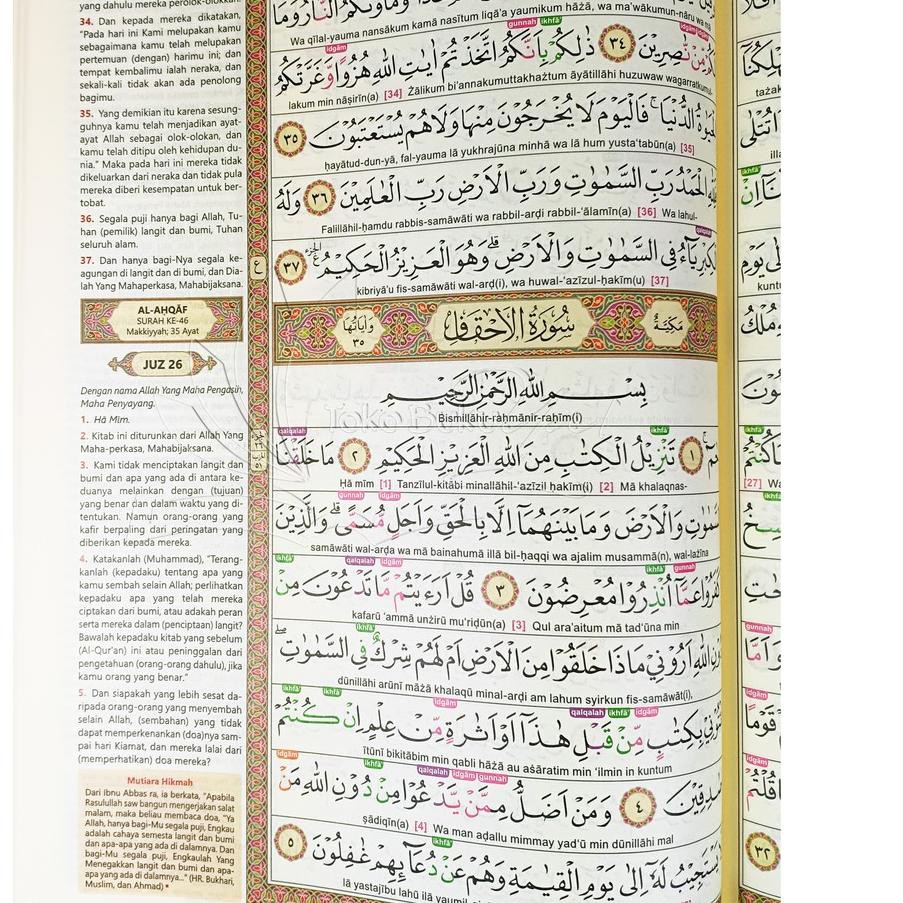 yang dahulu mereka perolok-olokkan.
34. Dan kepada mereka dikatakan,
"Pada hari ini Kami melupakan kamu
sebagaimana kamu telah melupakan
pertemuan (dengan) harimu ini; dan
tempat kembalimu ialah neraka, dan
sekali-kali tidak akan ada penolong
bagimu.
35. Yang demikian itu karena sesung-
guhnya kamu telah menjadikan ayat-
ayat Allah sebagai olok-olokan, dan
kamu telah ditipu oleh kehidupan du-
nia." Maka pada hari ini mereka tidak
dikeluarkan dari neraka dan tidak pula
mereka diberi kesempatan untuk ber-
tobat.
36. Segala puji hanya bagi Allah, Tu-
han (pemilik) langit dan bumi, Tuhan
seluruh alam.
37. Dan hanya bagi-Nya segala ke-
agungan di langit dan di bumi, dan Dia-
lah Yang Mahaperkasa, Mahabijaksana.
AL-AḤQĀF
SURAH KE-46
Makkiyyah; 35 Ayat
JUZ 26
Dengan nama Allah Yang Maha Pengasih,
Maha Penyayang.
1. Ḥā Mīm.
2. Kitab ini diturunkan dari Allah Yang
Maha-perkasa, Mahabijaksana.
3. Kami tidak menciptakan langit dan
bumi dan apa yang ada di antara ke-
duanya melainkan dengan (tujuan)
yang benar dan dalam waktu yang di-
tentukan. Namun orang-orang yang
kafir berpaling dari peringatan yang
diberikan kepada mereka.
4. Katakanlah (Muhammad), "Terang-
kanlah (kepadaku) tentang apa yang
kamu sembah selain Allah; perlihatkan
kepadaku apa yang telah mereka
ciptakan dari bumi, atau adakah peran
serta mereka dalam (penciptaan) langit?
Bawalah kepadaku kitab yang sebelum
(Al-Qur'an) ini atau peninggalan dari
pengetahuan (orang-orang dahulu), jika
kamu orang yang benar."
5. Dan siapakah yang lebih sesat da-
ripada orang-orang yang menyembah
selain Allah, (sembahan) yang tidak
dapat memperkenankan (doa)nya sam-
pai hari Kiamat, dan mereka lalai dari
(memperhatikan) doa mereka?
Mutiara Hikmah
Dari Ibnu Abbas ra, ia berkata, "Apabila
Rasulullah saw bangun mengerjakan salat
malam, maka beliau membaca doa, "Ya
Allah, hanya bagi-Mu segala puji, Engkau
adalah cahaya semesta langit dan bumi
dan apa-apa yang ada di dalamnya. Dan
bagi-Mu segala puji, Engkaulah Yang
Menegakkan langit dan bumi dan apa-
apa yang ada di dalamnya..." (HR. Bukhari,
Muslim, dan Ahmad)
Wa qīlal-yauma nansākum kamā nasītum liqā'a yaumikum hāżā, wa ma'wākumun-nāru wa mā
gunnah ikhfā'
idgām
نّٰصِرِيْنَ ٣٤ ذٰلِكُمْ بِاَنَّكُمُ اتَّخَذْتُمْ اٰيٰتِ اللّٰهِ هُزُوًا وَّغَرَّتْكُمُ
lakum min nāṣirīn(a) [34] Żālikum bi'annakumuttakhażtum āyātillāhi huzuwaw wagarratkumul-
الدُّنْيَا ۚ فَالْيَوْمَ لَا يُخْرَجُوْنَ مِنْهَا وَلَا هُمْ يُسْتَعْتَبُوْنَ ٣٥
ḥayātud-dun-yā, fal-yauma lā yukhrajūna minhā wa lā hum yusta'tabūn(a) [35]
الْحَمْدُ رَبِّ السَّمٰوٰتِ وَرَبِّ الْاَرْضِ رَبِّ الْعٰلَمِيْنَ ٣٦ وَلَهُ
Falillāhil-ḥamdu rabbis-samāwāti wa rabbil-arḍi rabbil-'ālamīn(a) [36] Wa lahul-
qalqalah
فِى السَّمٰوٰتِ وَالْاَرْضِ ۗ وَهُوَ الْعَزِيْزُ الْحَكِيْمُ ٣٧
kibriyā'u fis-samāwāti wal-arḍ(i), wa huwal-'azīzul-ḥakīm(u) [37]
مَكِّيَّةٌ سُوْرَةُ الْاَحْقَافِ وَاٰيَاتُهَا ٣٥
بِسْمِ اللّٰهِ الرَّحْمٰنِ الرَّحِيْمِ
Bismillāhir-raḥmānir-raḥīm(i)
ikhfā' qalqalah
١ تَنْزِيْلُ الْكِتٰبِ مِنَ اللّٰهِ الْعَزِيْزِ الْحَكِيْمِ ٢ مَا خَلَقْنَا
Ḥā mīm [1] Tanzīlul-kitābi minallāhil-'azīzil ḥakīm(i) [2] Mā khalaqnas-
gunnah idgām
وَالْاَرْضَ وَمَا بَيْنَهُمَآ اِلَّا بِالْحَقِّ وَاَجَلٍ مُّسَمًّى ۗ وَالَّذِيْنَ
samāwāti wal-arḍa wa mā bainahumā illā bil-ḥaqqi wa ajalim musammā(n), wal-lażīna
ikhfā' gunnah idgām qalqalah ikhfā'
عَمَّآ اُنْذِرُوْا مُعْرِضُوْنَ ٣ قُلْ اَرَءَيْتُمْ مَّا تَدْعُوْنَ مِنْ
kafarū 'ammā unżirū mu'riḍūn(a) [3] Qul ara'aitum mā tad'ūna min
ikhfā'
اللّٰهِ اَرُوْنِيْ مَاذَا خَلَقُوْا مِنَ الْاَرْضِ اَمْ لَهُمْ شِرْكٌ فِى السَّمٰوٰتِ ۖ
dūnillāhi arūnī māżā khalaqū minal-arḍi am lahum syirkun fis-samāwāt(i),
idgām ikhfā' qalqalah idgām ikhfā' ikhfā'
بِكِتٰبٍ مِّنْ قَبْلِ هٰذَآ اَوْ اَثٰرَةٍ مِّنْ عِلْمٍ اِنْ كُنْتُمْ
ītūnī bikitābim min qabli hāżā au aṡāratim min 'ilmin in kuntum
gunnah idgām qalqalah ikhfā' idgām
صٰدِقِيْنَ ٤ وَمَنْ اَضَلُّ مِمَّنْ يَّدْعُوْا مِنْ دُوْنِ اللّٰهِ مَنْ
ṣādiqīn(a) [4] Wa man aḍallu mimmay yad'ū min dūnillāhi mal
ikhfā'
يَسْتَجِيْبُ لَهٗٓ اِلٰى يَوْمِ الْقِيٰمَةِ وَهُمْ عَنْ دُعَاۤىِٕهِمْ غٰفِلُوْنَ ٥
lā yastajību lahū ilā yaumil